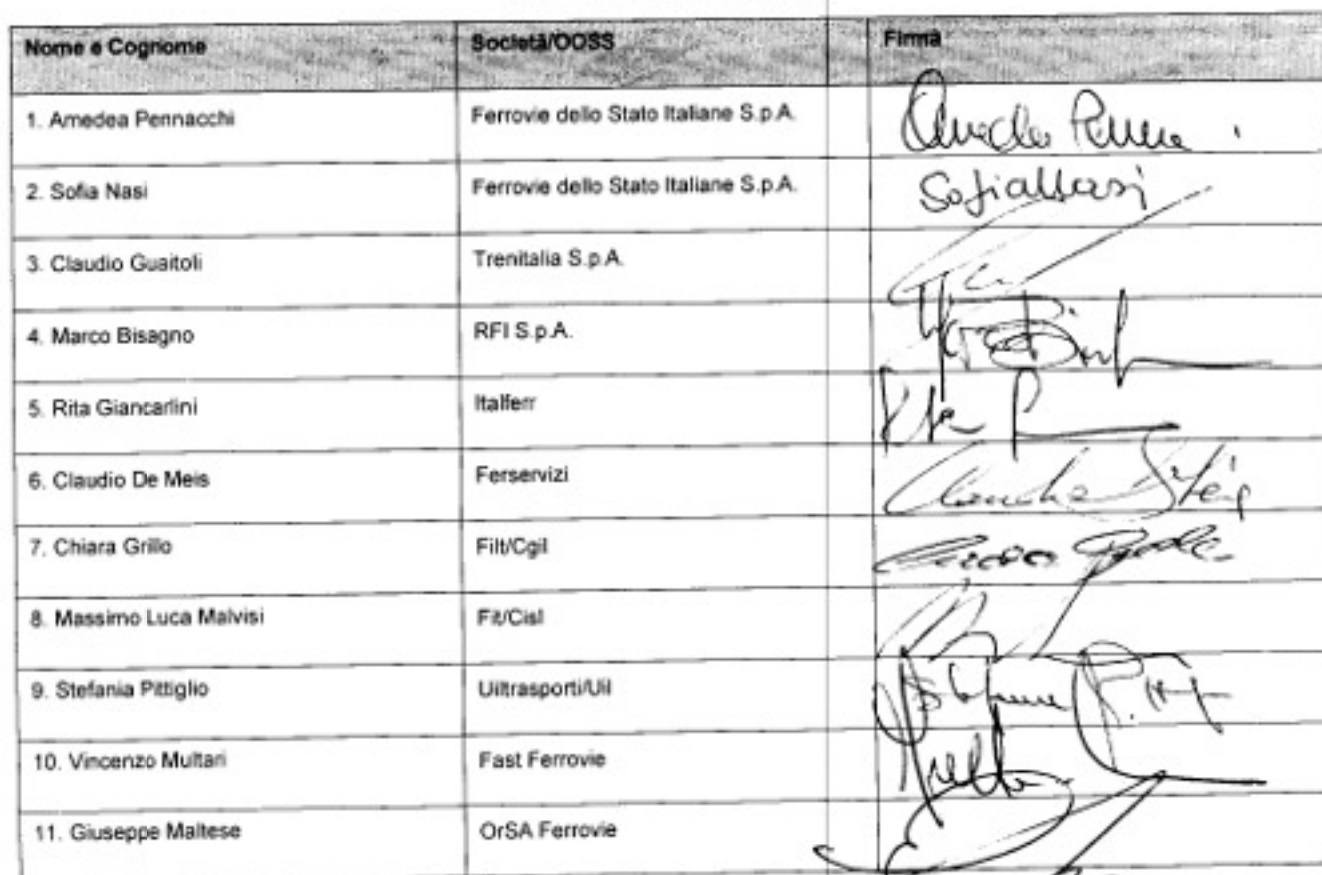 Nome e Cognome Società/OOSS Firma
1. Amedea Pennacchi Ferrovie dello Stato Italiane S.p.A.
2. Sofia Nasi Ferrovie dello Stato Italiane S.p.A. Sofia Nasi
3. Claudio Guaitoli Trenitalia S.p.A.
4. Marco Bisagno RFI S.p.A.
5. Rita Giancarlini Italferr
6. Claudio De Meis Ferservizi
7. Chiara Grillo Filt/Cgil
8. Massimo Luca Malvisi Fit/Cisl
9. Stefania Pittiglio Uiltrasporti/Uil
10. Vincenzo Multari Fast Ferrovie
11. Giuseppe Maltese OrSA Ferrovie